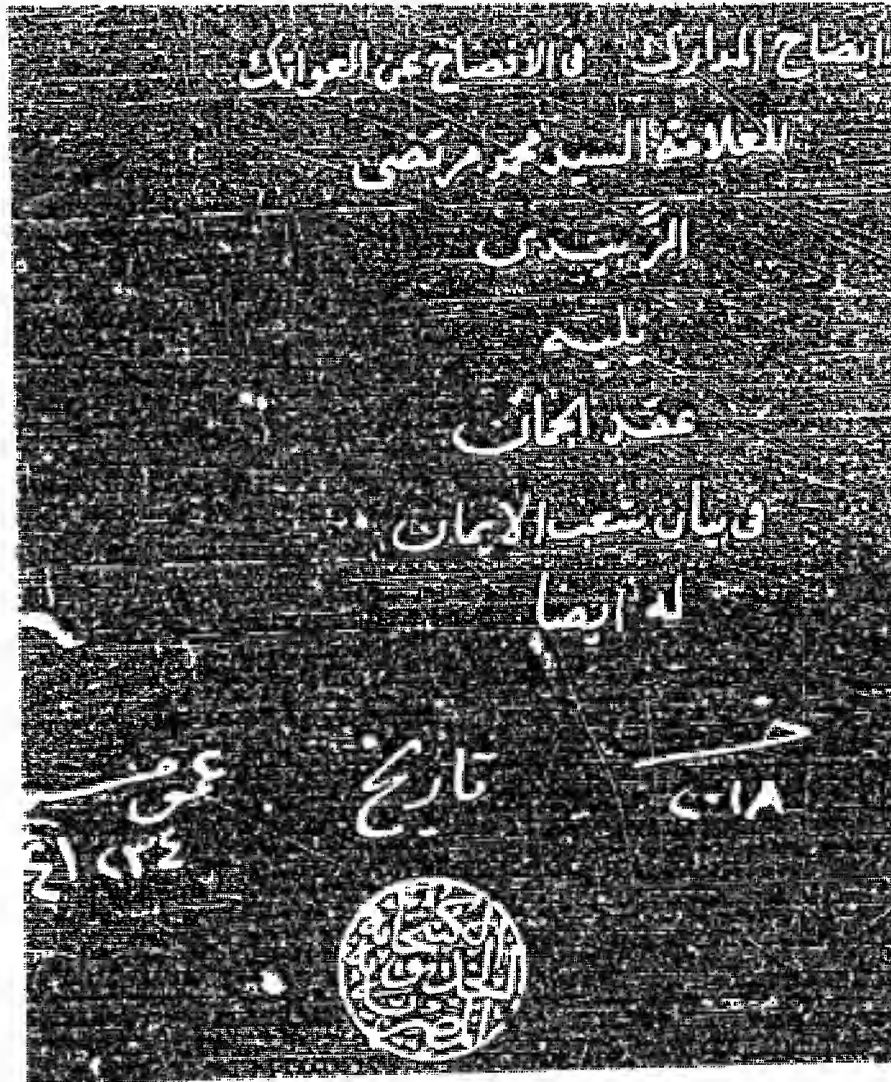 ايضاح المدارك في الافصاح عن العواتك
للعلامة السيد محمد مرتضى
الزَّبيدى
يليه
عقد الجمان
فى بيان شعب الايمان
له ايضا
خـ تاريخ عمومية
٢٠١٨
الكتبخانة الخديوية المصرية